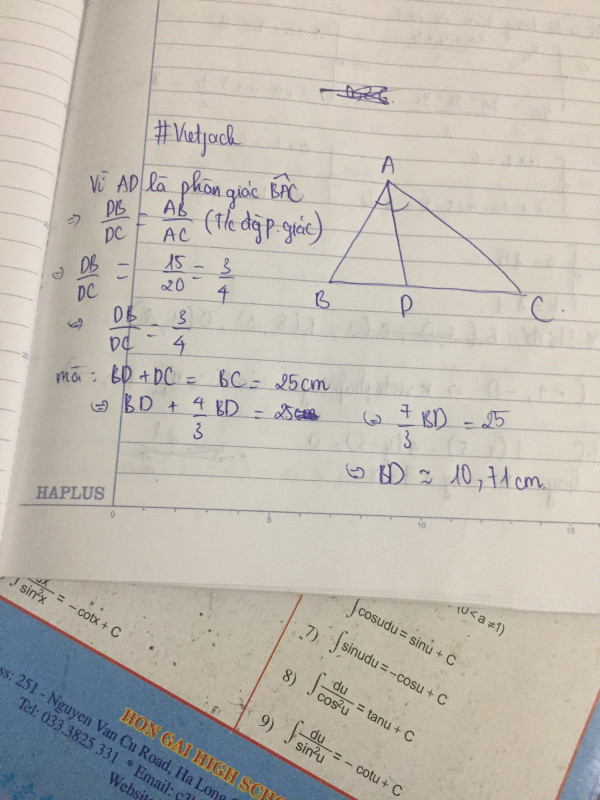 #Vietjack
A
B
D
C
Vì AD là phân giác BÂC
=> DB/DC = AB/AC (T/c đg p. giác)
=> DB/DC = 15/20 = 3/4
=> DB/DC = 3/4
mà: BD + DC = BC = 25cm
=> BD + 4/3 BD = 25
=> 7/3 BD = 25
=> BD ≈ 10,71cm.
HAPLUS
0 5 10 15
sin²x = -cotx + C
(0 < a ≠ 1)
∫cosudu = sinu + C
7) ∫sinudu = -cosu + C
8) ∫du/cos²u = tanu + C
9) ∫du/sin²u = -cotu + C
HON GAI HIGH SCHO
ss: 251 - Nguyen Van Cu Road, Ha Long
Tel: 033.3825 331 * Email: c3
Website